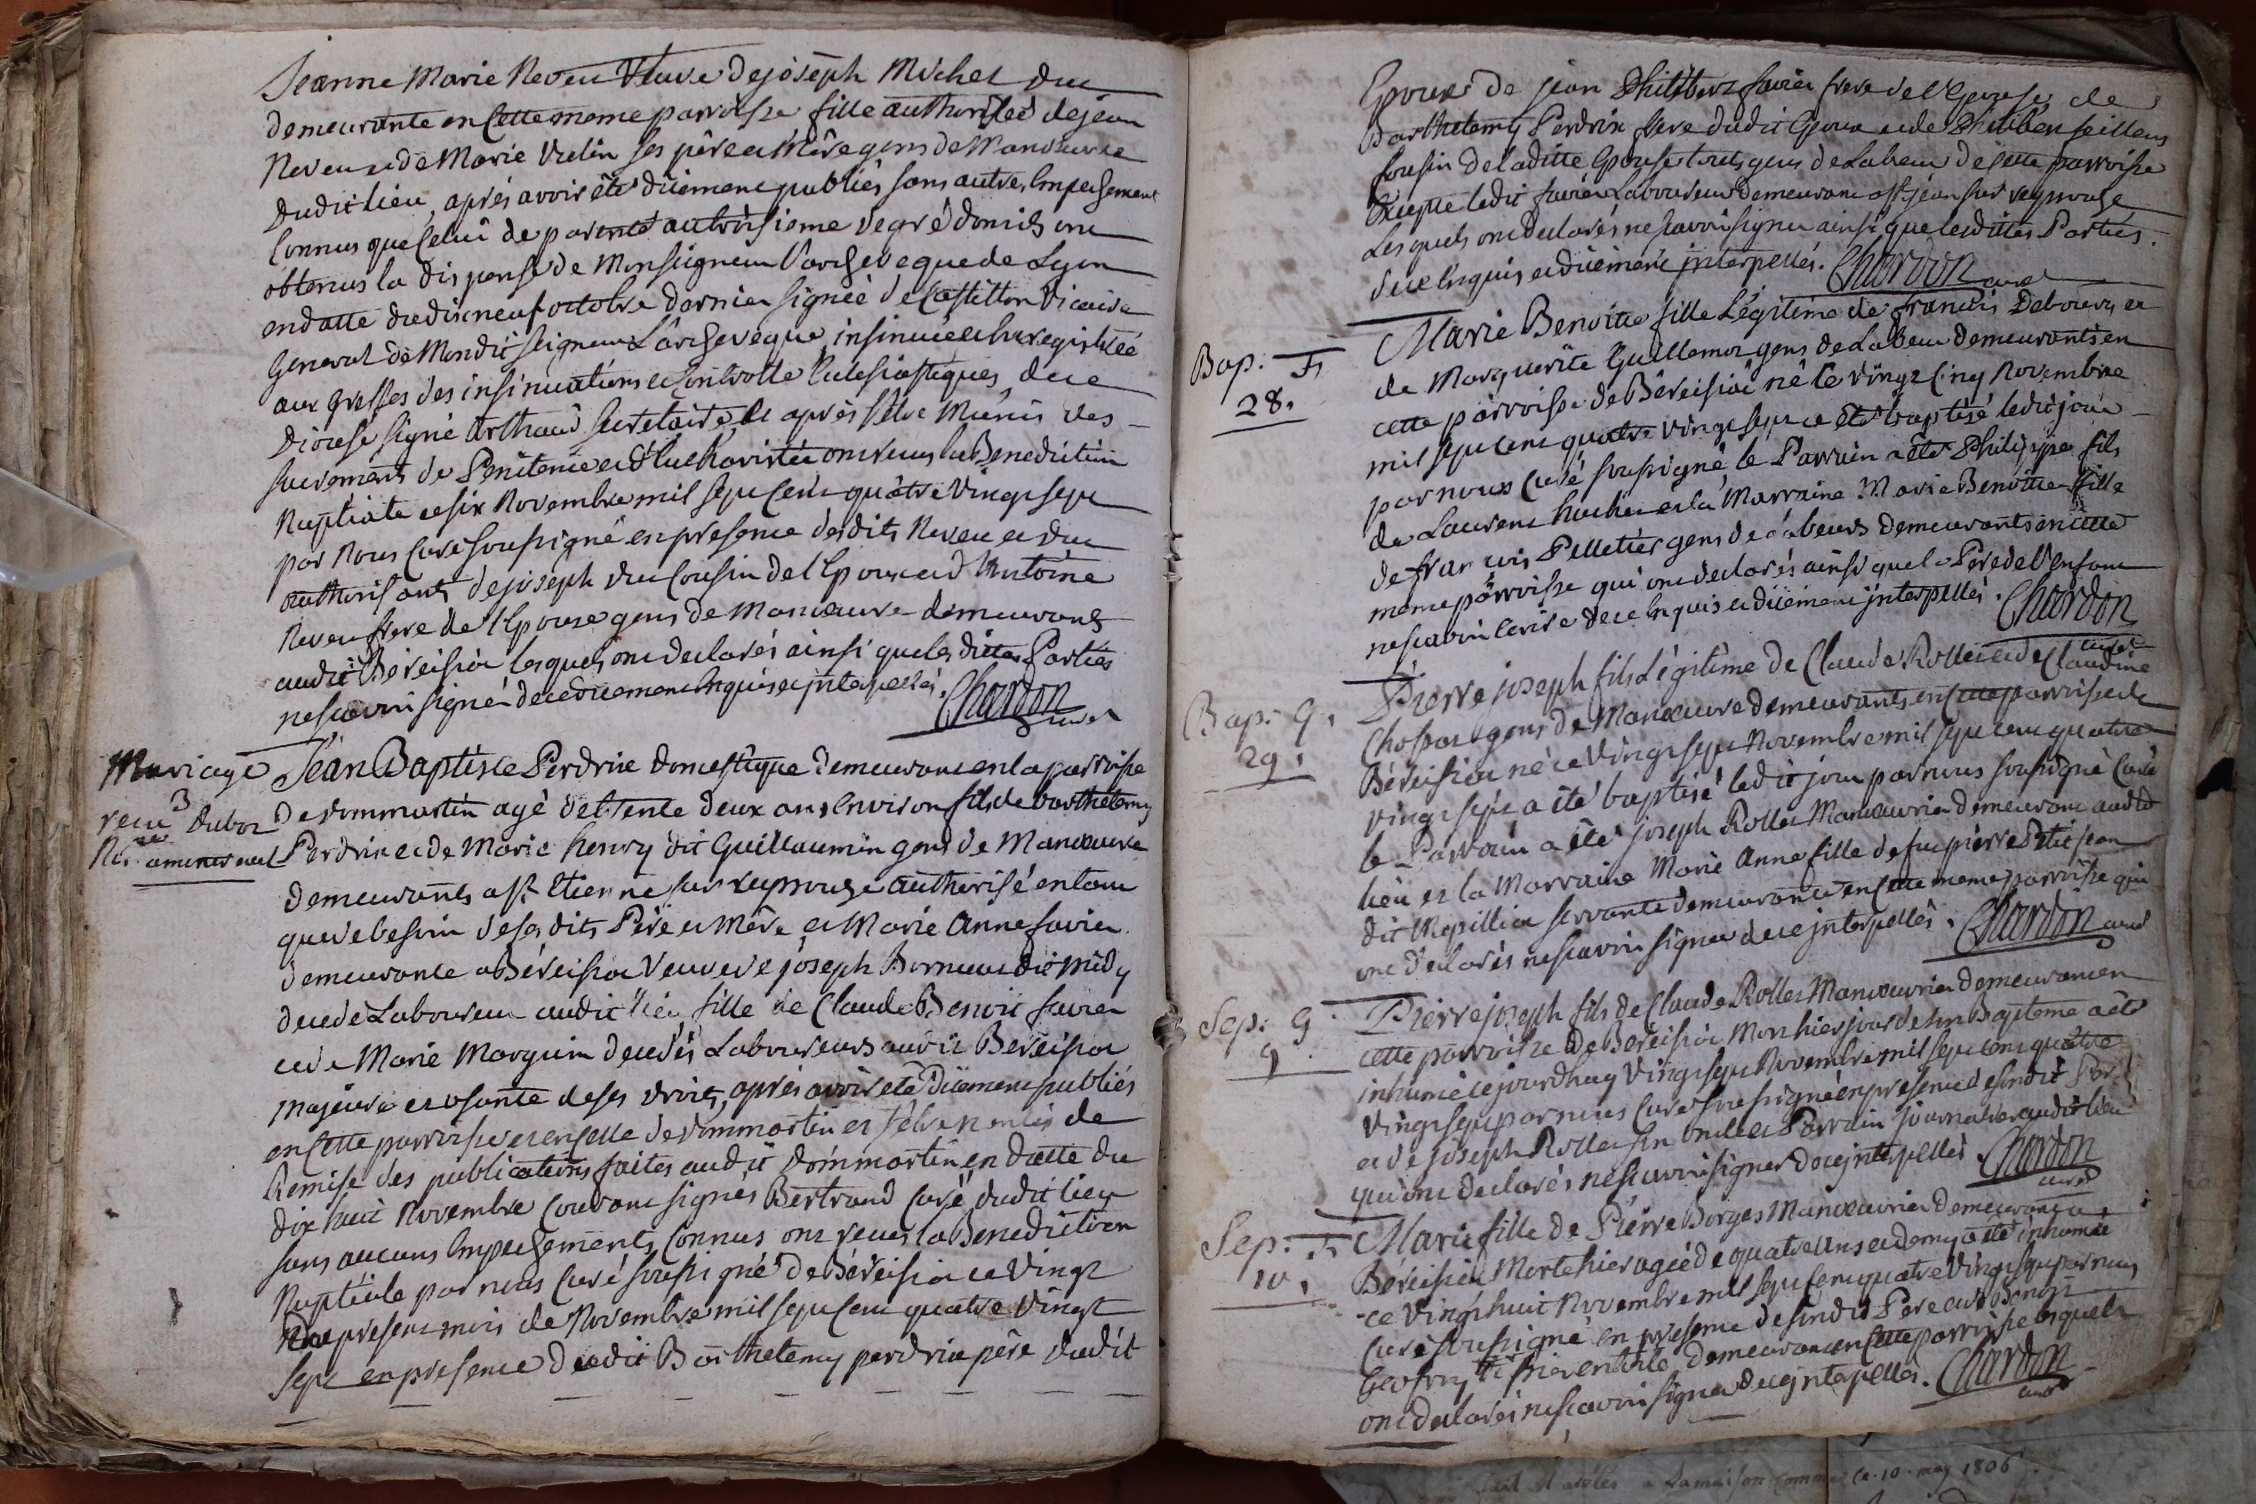 Jeanne Marie Neveu Veuve de joseph Michel Duc
demeurante en Cette meme parroisse fille authorisée de jean
Neveu et de Marie Vielin ses père et Mère gens de Manœuvre
dudit lieu, après avoir été düement publiés sans autres Empechement
Connus que Celui de parenté au troisieme degré dont ils ont
obtenus la dispense de Monseigneur l'archeveque de Lyon
en datte du dixneuf octobre dernier signée de Castillon Vicaire
General de Mondit seigneur L'archeveque, insinuée et Enregistrée
aux Greffes des insinuations et Controlle Eclesiastiques de ce
Diocèse signé Arthaud secretaire, et après s'être Munis des
sacrements de Penitence et d'Eucharistie ont reçus la Benediction
Nuptiale ce six Novembre mil sept Cent quatre Vingt sept
par Nous Curé soussigné en presence desdits Neveu et Duc
authorisants de joseph Duc Cousin de l'Epoux et d'Antoine
Neveu frere de l'Epouse gens de Manœuvre demeurants
audit Béreisia lesquels ont declarés ainsi que les dittes Parties
ne scavoir signé de ce düement Enquis et jnterpellés. Chardon
curé
Mariage
3
reçu Dubor
amener neul
Jean Baptiste Perdrix domestique demeurant en la parroisse
de Dommartin agé de trente deux ans Environ fils de barthelemy
Perdrix et de Marie henry dit Guillaumin gens de Manœuvre
demeurants a st Etienne sur reyssouze authorisé en tant
que de besoin de ses dits Père et Mère et Marie Anne favier
demeurante a Béreisia Veuve de joseph Borneur dit Midy
decedé Laboureur audit lieu fille de Claude Benoit favier
et de Marie Marguin decedés Laboureurs audit Béreisia
majeure et usante de ses droits, après avoir été Düement publiés
en Cette parroisse et en Celle de Dommartin et s'être munis de
Remise des publications faites audit Dommartin en datte du
dix huit Novembre Courant signés Bertrand Curé dudit lieu
sans aucuns Empechements Connus ont reçus la Benediction
Nuptiale par nous Curé soussigné de Béreisia ce Vingt
du present mois de Novembre mil sept Cent quatre Vingt
sept en presence dudit Barthelemy perdrix père dudit
Epoux de jean Philibert favier frere de l'Epouse de
Barthelemy Perdrix frere dudit Epoux et de Philibert
Cousin de laditte Epouse touts gens de Labeur de cette parroisse
Excepté ledit favier Laboureur demeurant a st jean sur reyssouze
Lesquels ont declarés ne scavoir signer ainsi que lesdittes Parties
de ce Enquis et düement jnterpellés. Chardon curé
Bap. F
28.
Marie Benoitte fille Légitime de francois Debourg et
de Marguerite Guillemot gens de Labeur demeurants en
cette parroisse de Béreisia né le Vingt Cinq Novembre
mil sept cent quatre Vingt sept a été baptisé ledit jour
par nous Curé soussigné le Parrain a été Philippe fils
de Laurent et la Marraine Marie Benoitte fille
de francois Pelletier gens de Labeurs demeurants en cette
meme parroisse qui ont declarés ainsi que le Pere de l'Enfant
ne scavoir Ecrire de ce Enquis et düement jnterpellés. Chardon
curé
Bap. G.
29.
Pierre joseph fils Légitime de Claude Rollet et de Claudine
Chossat gens de Manœuvre demeurants en Cette parroisse de
Béreisia né ce Vingt sept Novembre mil sept cent quatre
vingt sept a été baptisé ledit jour par nous soussigné Curé
le Parrain a été joseph Rollet Manœuvrier demeurant audit
lieu et la Marraine Marie Anne fille de feu pierre Petitjean
dit Mepillia servante demeurante en Cette meme parroisse qui
ont declarés ne scavoir signer de ce jnterpellés. Chardon curé
Sep. G
9
Pierre joseph fils de Claude Rollet Manœuvrier demeurant en
cette parroisse de Béreisia Mort hier jour de son Bapteme a été
inhumé ce jourdhuy Vingt sept Novembre mil sept cent quatre
Vingt sept par nous Curé soussigné en presence de sondit Per.
et de joseph Rollet son oncle et Parrain journalier audit lieu
qui ont declarés ne scavoir signer de ce jnterpellés. Chardon
curé
Sep. F
10.
Marie fille de Pierre Borges Manœuvrier demeurant a
Béreisia Morte hier agée de quatre ans et demy a été inhumée
ce Vingt huit Novembre mil sept Cent quatre Vingt sept par nous
Curé soussigné en presence de sondit Pere et de Benoit
Geofray demeurant en Cette parroisse lesquels
ont declarés ne scavoir signer de ce jnterpellés. Chardon
curé
a La maison Commune Ce 10 may 1806